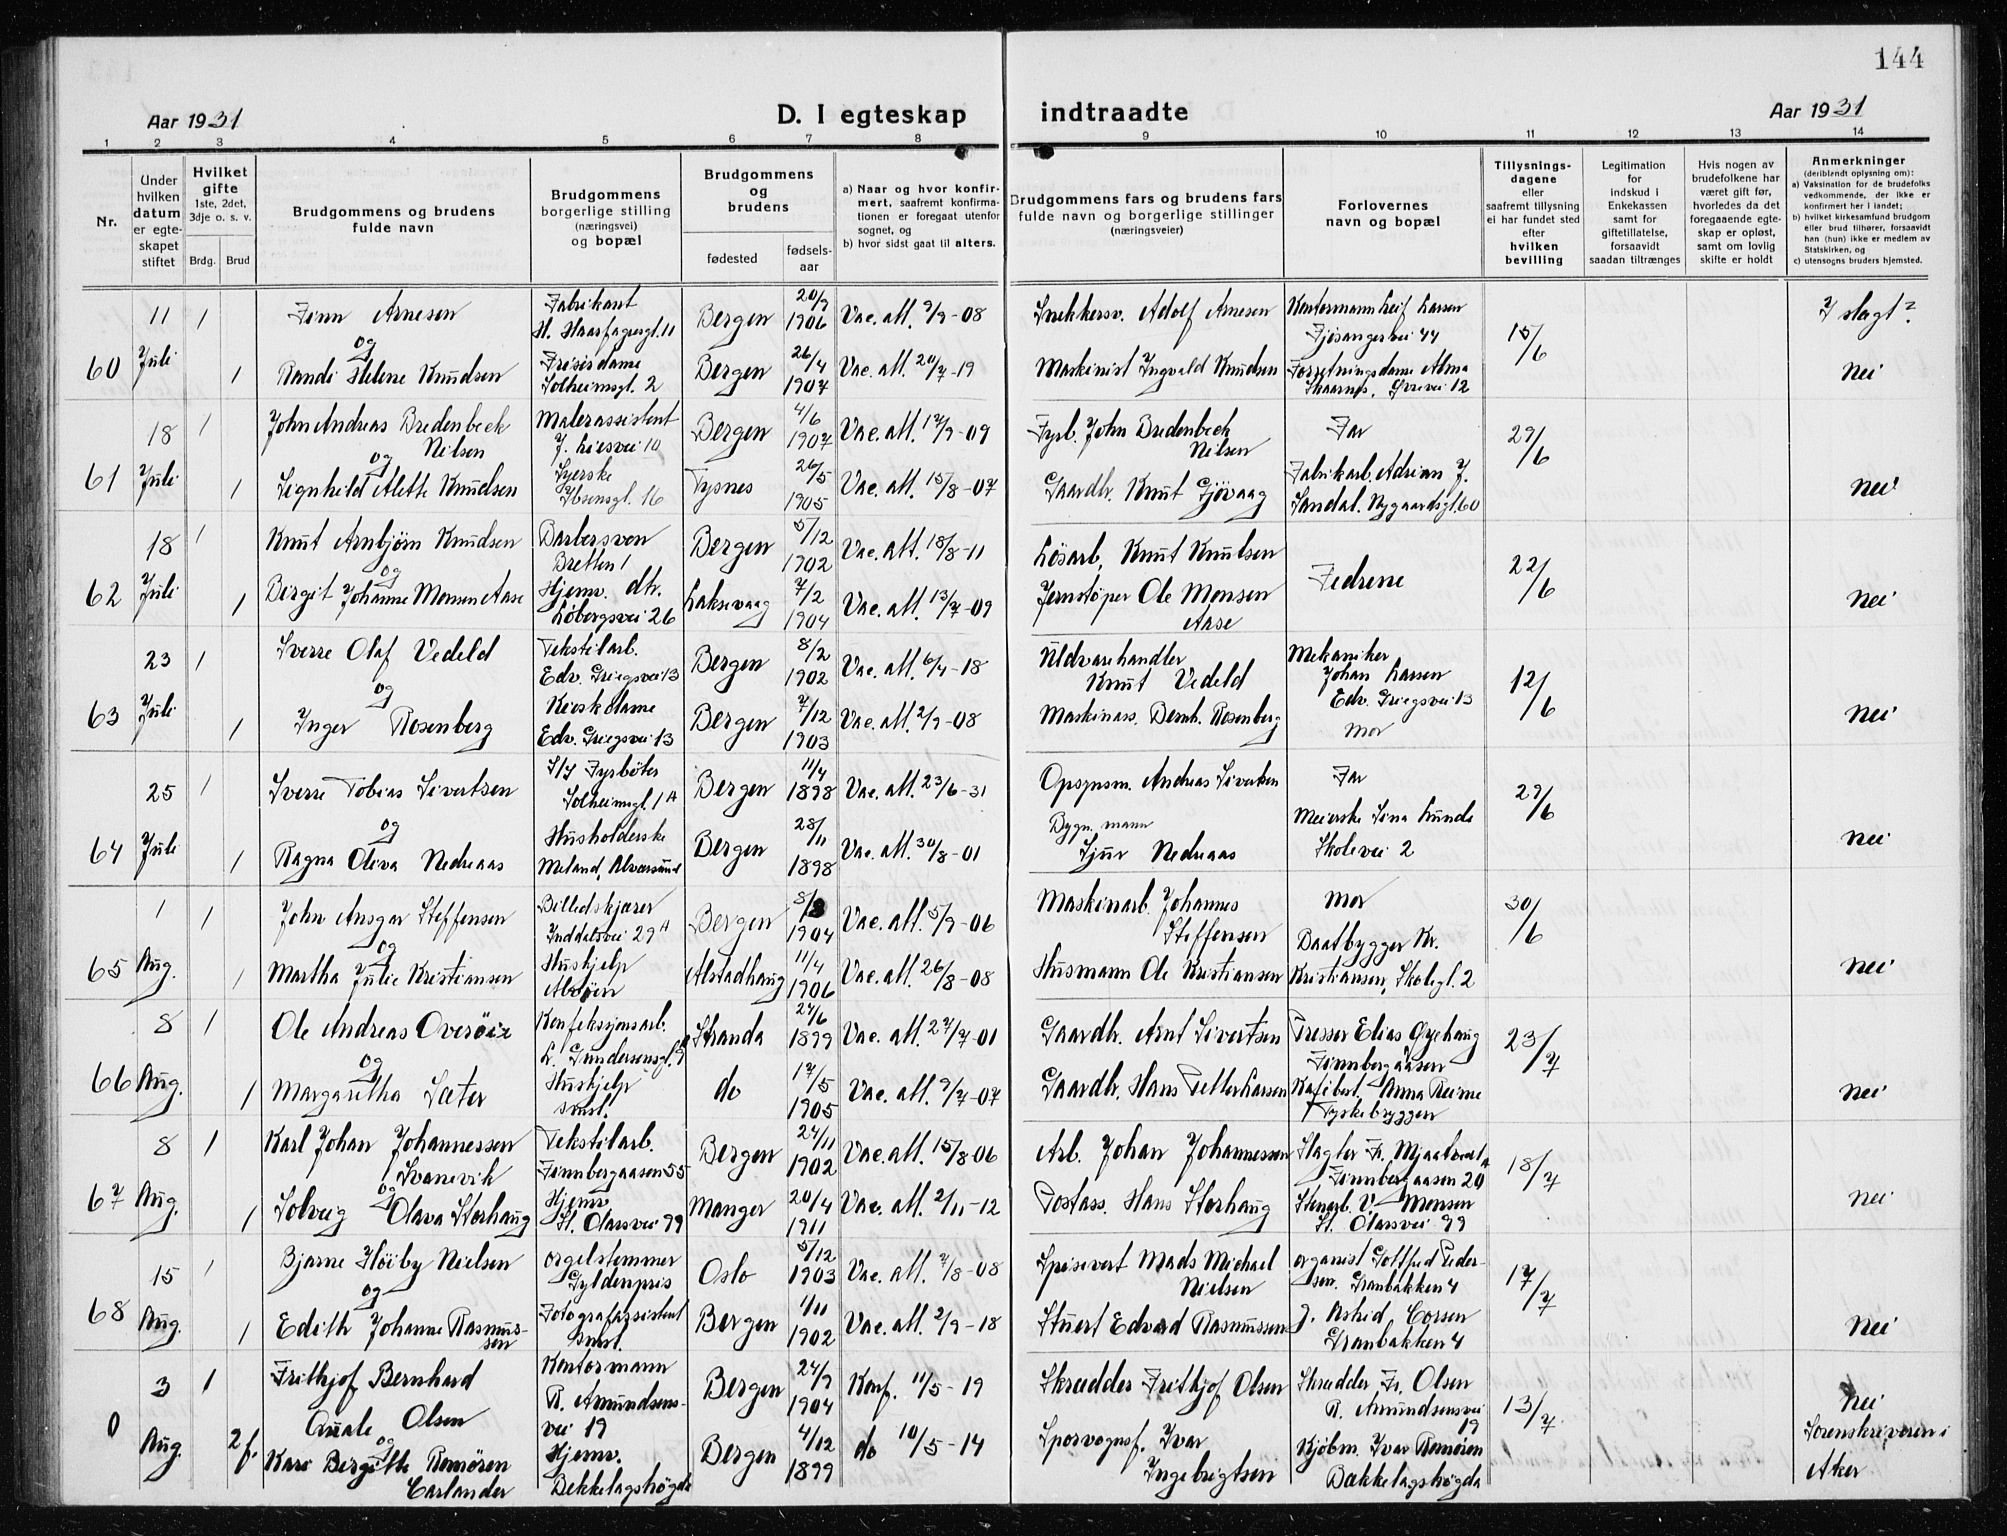 144
Aar 1931
D. I egteskap indtraadte
Aar 1931
1 2 3 4 5 6 7 8 9 10 11 12 13 14
Nr.
Under hvilken datum er egteskapet stiftet
Hvilket gifte 1ste, 2det, 3dje o. s. v.
Brdg. Brud
Brudgommens og brudens fulde navn
Brudgommens borgerlige stilling (næringsvei) og bopæl
Brudgommens og brudens
fødested
fødsels-aar
a) Naar og hvor konfirmert, saafremt konfirmationen er foregaat utenfor sognet, og
b) hvor sidst gaat til alters.
Brudgommens fars og brudens fars fulde navn og borgerlige stillinger (næringsveier)
Forlovernes navn og bopæl
Tillysningsdagene eller saafremt tillysning ei har fundet sted efter hvilken bevilling
Legitimation for indskud i Enkekassen samt for giftetillatelse, forsaavidt saadan tiltrænges
Hvis nogen av brudefolkene har været gift før, hvorledes da det foregaaende egteskap er opløst, samt om lovlig skifte er holdt
Anmerkninger (deriblendt oplysning om):
a) Vaksination for de brudefolks vedkommende, der ikke er konfirmert her i landet;
b) hvilket kirkesamfund brudgom eller brud tilhører, forsaavidt han (hun) ikke er medlem av Statskirken, og
c) utensogns bruders hjemsted.
60 11 Juli 1 Finn Arnesen Fabrikant H. Haarfagersgt. 11 Bergen 20/9 1906 Vac. att. 9/9-08 Snekkersv. Adolf Arnesen Kontormann Leif Larsen Fjøsangervei 44 15/6 I slegt?
og
1 Randi Helene Knudsen Frisørdame Solheimsgt. 2 Bergen 26/4 1907 Vac. att. 20/7-19 Maskinist Ingvald Knudsen Forretningsdame Alma Skaarnes, Øvrevei 12 Nei
61 18 Juli 1 John Andreas Bredenbeck Nilsen Malerassistent J. Liesvei 10 Bergen 4/6 1907 Vac. att. 17/9-09 Fyrb. John Bredenbeck Nilsen Far 29/6
og
1 Signhild Alette Knudsen Syerske Ibsensgt. 16 Tysnes 26/5 1905 Vac. att. 15/8-07 Gaardbr. Knut Gjövaag Fabrikarb. Adrian J. Sandal. Nygaardsgt. 60 Nei
62 18 Juli 1 Knut Arnbjörn Knudsen Barbersvon Bretten 1 Bergen 5/12 1902 Vac. att. 18/8-11 Lösarb, Knut Knutsen Fedrene 22/6
og
1 Birgit Johanne Monsen Aase Hjemv. dtr. Löbergsvei 26 Laksevaag 7/2 1904 Vac. att. 13/7-09 Jernstöper Ole Monsen Aase Nei
63 23 Juli 1 Sverre Olaf Vedeld Tekstilarb. Edv. Griegsvei 13 Bergen 8/2 1902 Vac. att. 6/4-18 Uldvarehandler Knut Vedeld Mekaniker Johan Larsen Edv. Griegsvei 13 12/6
og
1 Inger Rosenberg Kioskdame Edv. Griegsvei 13 Bergen 7/12 1903 Vac. att. 2/9-08 Maskinass. Bernh. Rosenberg Mor Nei
64 25 Juli 1 Sverre Tobias Sivertsen S/S Fyrböter Solheimsgt. 1 A Bergen 11/4 1898 Vac. att. 23/6-31 Opsynsm. Andreas Sivertsen Far 29/6
og
1 Ragna Oliva Nedreaas Husholderske Meland, Alversund Bergen 28/11 1898 Vac. att. 30/8-01 Bygn. mann Sjur Nedreaas Meierske Sina Lunde Skolevei 2 Nei
65 1 Aug. 1 John Ansgar Steffensen Billedskjærer Inddalsvei 29 A Bergen 8/8 1904 Vac. att. 5/9-06 Maskinarb. Johannes Steffensen Mor 30/6
og
1 Martha Julie Kristiansen Huskjelp Alvöen Alstadhaug 11/4 1906 Vac. att. 26/8-08 Husmann Ole Kristiansen Baatbygger Kr. Kristiansen, Skolegt. 2 Nei
66 8 Aug. 1 Ole Andreas Overöie Konfeksjonsarb. L. Gundersensgt. 9 Stranda 27/6 1899 Vac. att. 27/7-01 Gaardbr. Arnt Sivertsen Presser Elias Øyehaug Finnbergaasen 23/7
og
1 Margaretha Sæter Huskjelp smst. do 17/5 1905 Vac. att. 9/7-07 Gaardbr. Hans Petter Larsen Kafébest. Anna Reime Tyskebryggen Nei
67 8 Aug. 1 Karl Johan Johannessen Svanevik Tekstilarb. Finnbergaasen 55 Bergen 24/11 1902 Vac. att. 15/8-06 Arb. Johan Johannessen Slagter Fr. Mjaatvedt Finnbergaasen 29 18/7
og
1 Solveig Olava Storhaug Hjemv. St. Olavsvei 99 Manger 20/4 1911 Vac. att. 2/11-12 Postass. Hans Storhaug Stenarb. V. Monsen St. Olavsvei 99 Nei
68 15 Aug. 1 Bjarne Höiby Nielsen Orgelstemmer Gyldenpris Oslo 5/12 1903 Vac. att. 7/8-08 Spisevert Mads Michael Nielsen Organist Gottfred Pedersen. Granbakken 4 17/7
og
1 Edith Johanne Rasmussen Fotografassistent smst. Bergen 1/11 1902 Vac. att. 2/9-18 Stuert Edvard Rasmussen J. Astrid Corsen Granbakken 4 Nei
0 3 Aug. 1 Frithjof Bernhard Quale Olsen Kontormann R. Amundsensvei 19 Bergen 24/9 1904 Konf. 11/5-19 Skrædder Frithjof Olsen Skrædder Fr. Olsen R. Amundsensvei 19 13/7 Nei
og
2 f. Kari Bergitte Remören Carlander Hjemv. Bekkelagshögda Bergen 4/12 1899 do 10/5-14 Sporvognsf. Ivar Ingebrigtsen Kjöbm. Ivar Remören Bækkelagshögda Sorenskriveren i Aker